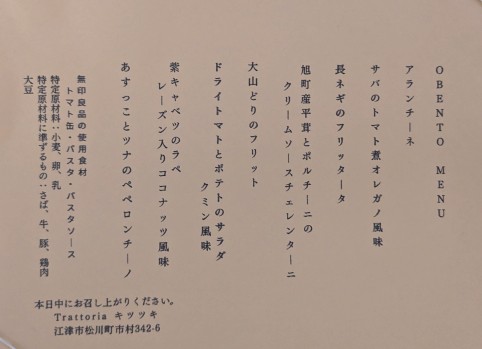 OBENTO MENU
アランチーネ
サバのトマト煮オレガノ風味
長ネギのフリッタータ
旭町産平茸とポルチーニの
クリームソースチェレンターニ
大山どりのフリット
ドライトマトとポテトのサラダ
クミン風味
紫キャベツのラペ
レーズン入りココナッツ風味
あすっことツナのペペロンチーノ
無印良品の使用食材
トマト缶・パスタ・パスタソース
特定原材料:小麦、卵、乳
特定原材料に準ずるもの:さば、牛、豚、鶏肉
大豆
本日中にお召し上がりください。
Trattoria キツツキ
江津市松川町市村342-6